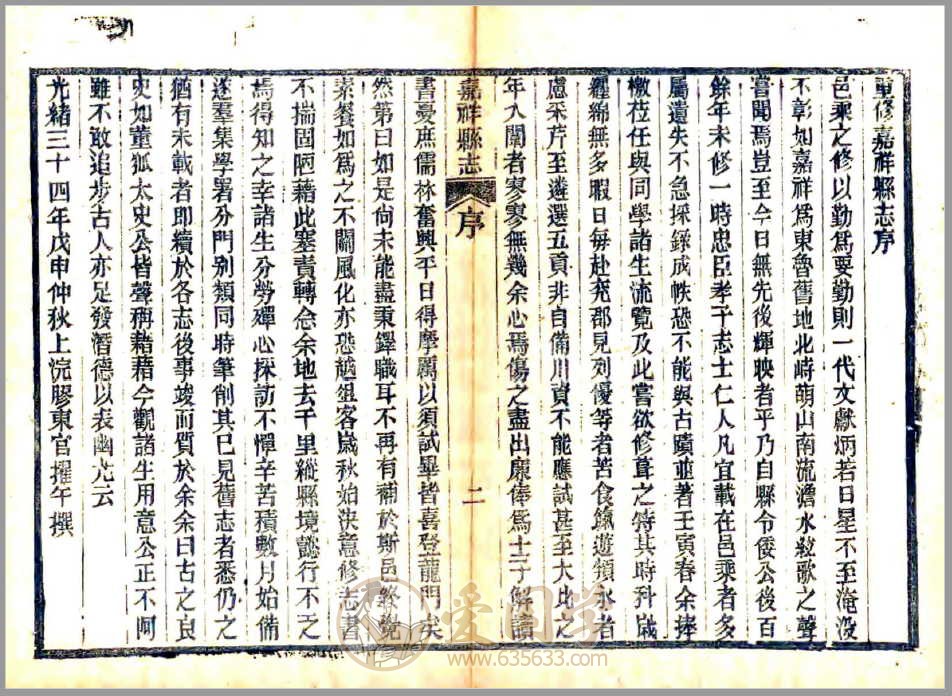 重修嘉祥縣志序
邑乘之修以勤爲要勤則一代文獻炳若日星不至淹沒
不彰如嘉祥爲東魯舊地北峙萌山南流澹水絃歌之聲
嘗聞焉豈至今日無先後輝映者乎乃自縣令倭公後百
餘年未修一時忠臣孝子志士仁人凡宜載在邑乘者多
屬遺失不急採錄成帙恐不能與古蹟並著壬寅春余捧
檄莅任與同學諸生流覽及此嘗欲修葺之特其時科歲
纏綿無多暇日每赴兖郡見列優等者苦食餼遊頖水者
慮采芹至遴選五貢非自備川資不能應試甚至大比之
年入闈者寥寥無幾余心焉傷之盡出廉俸爲士子解讀
嘉祥縣志
序
二
書憂庶儒林奮興平日得摩厲以須試畢皆喜登龍門矣
然第曰如是尚未能盡秉鐸職耳不再有補於斯邑終覺
素餐如爲之不關風化亦恐越俎客歲秋始決意修志書
不揣固陋藉此塞責轉念余地去千里縱縣境誌行不乏
焉得知之幸諸生分勞殫心採訪不憚辛苦積數月始備
遂羣集學署分門別類同時筆削其已見舊志者悉仍之
猶有未載者即續於各志後事竣而質於余余曰古之良
史如董狐太史公皆聲稱藉藉今觀諸生用意公正不阿
雖不敢追步古人亦足發潛德以表幽光云
光緒三十四年戊申仲秋上浣膠東官擢午撰
爱同学
www.635633.com